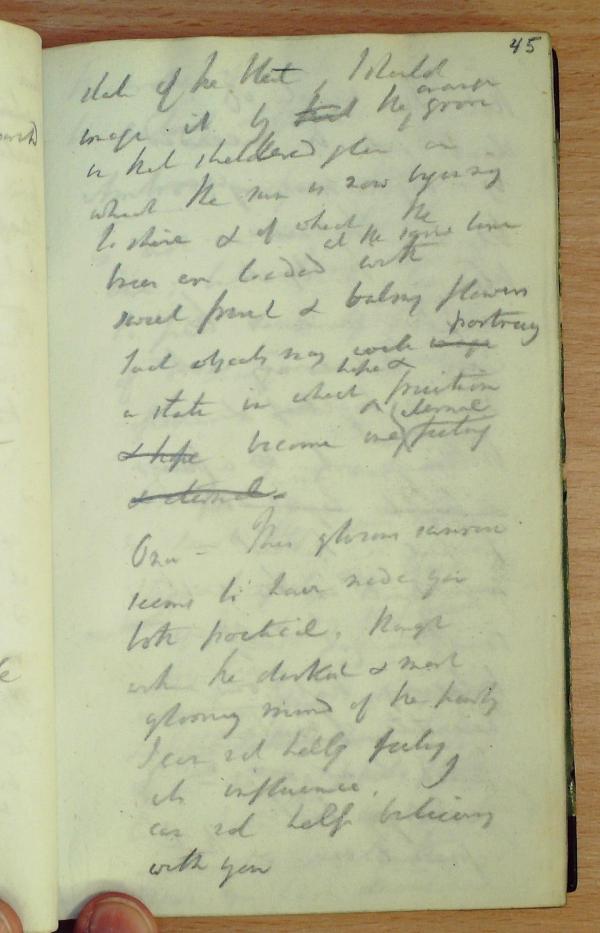 45
state of the that I should
image it by the orange grove
in that sheltered glen on
which the sun is now beginning
to shine & of which the
trees are loaded at the same time with
sweet fruit & balmy flowers
Such objects may well portray
a state in which hope & fruition
& hope become one eternal feeling
& eternal.
Onu – This glorious sunrise
seems to have made you
both poetical, though
with the darkest & most
gloomy mind of the party
I can not help feeling
its influence,
can not help believing
with you